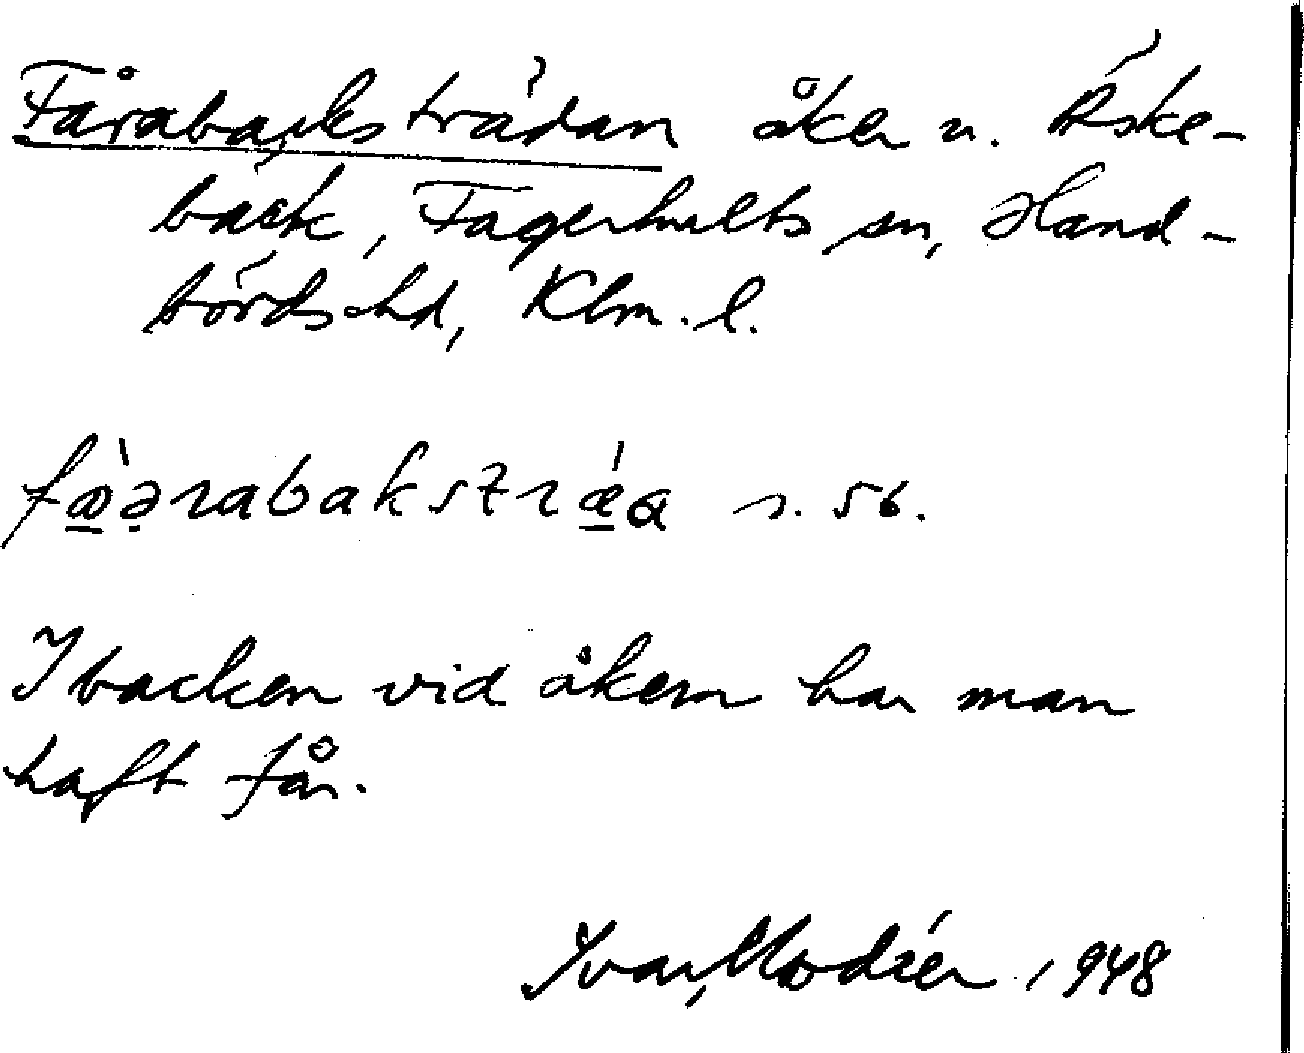 Fårabacksträdan åker n. Äske-
bäck, Fagerhults sn, Hand-
börds hd, Klm. l.
s. 56.
I backen vid åkern har man
haft får.
Ivar Modéer 1948